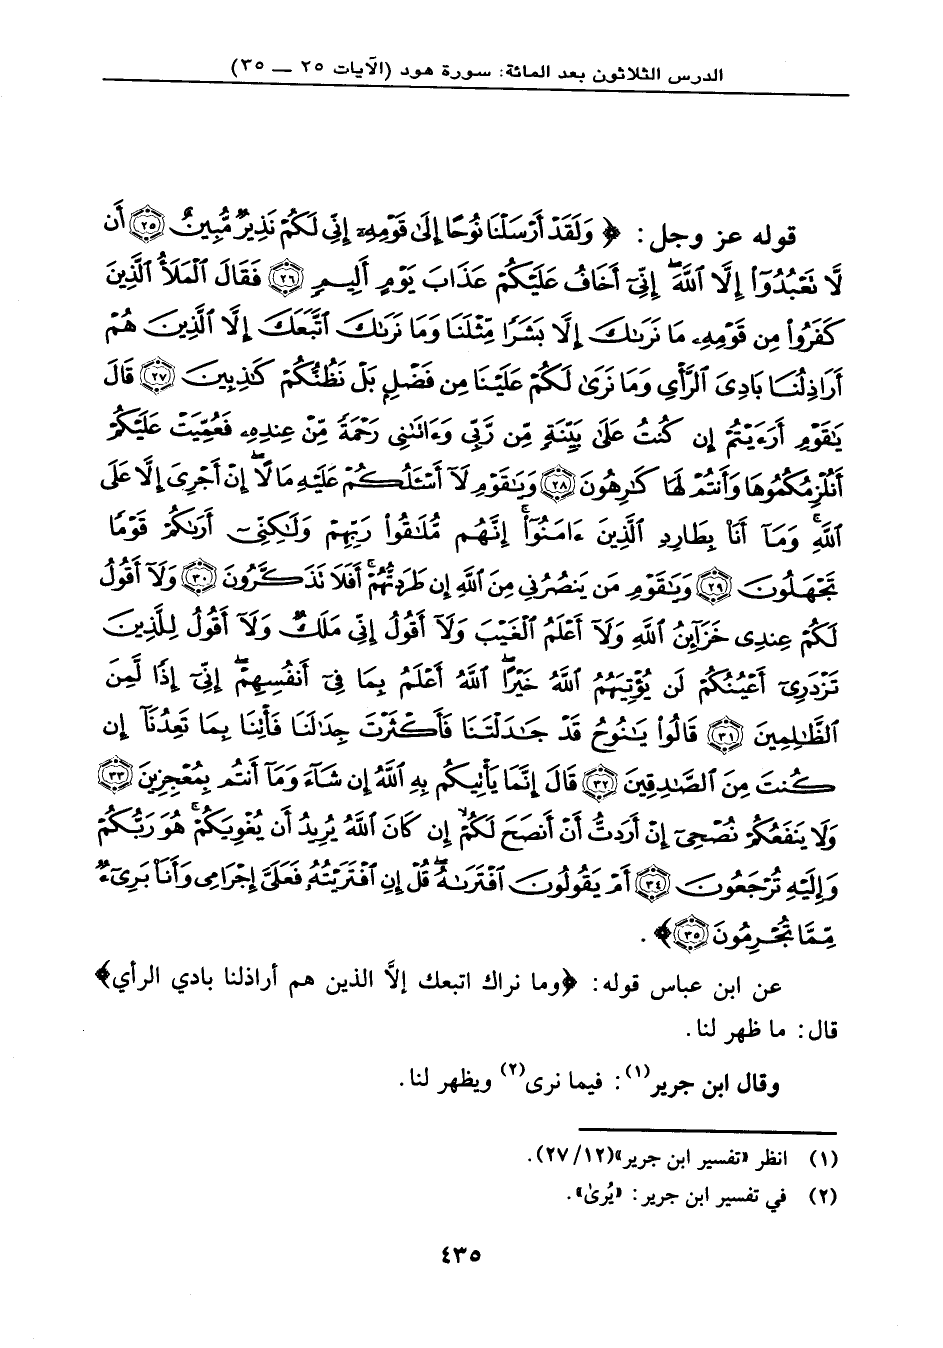 الدرس الثلاثون بعد المائة: سورة هود (الآيات ٢٥ — ٣٥)
قوله عز وجل: ﴿ وَلَقَدْ أَرْسَلْنَا نُوحًا إِلَىٰ قَوْمِهِۦٓ إِنِّى لَكُمْ نَذِيرٌ مُّبِينٌ ۝٢٥ أَن
لَّا تَعْبُدُوٓا۟ إِلَّا ٱللَّهَ ۖ إِنِّىٓ أَخَافُ عَلَيْكُمْ عَذَابَ يَوْمٍ أَلِيمٍ ۝٢٦ فَقَالَ ٱلْمَلَأُ ٱلَّذِينَ
كَفَرُوا۟ مِن قَوْمِهِۦ مَا نَرَىٰكَ إِلَّا بَشَرًا مِّثْلَنَا وَمَا نَرَىٰكَ ٱتَّبَعَكَ إِلَّا ٱلَّذِينَ هُمْ
أَرَاذِلُنَا بَادِىَ ٱلرَّأْىِ وَمَا نَرَىٰ لَكُمْ عَلَيْنَا مِن فَضْلٍۭ بَلْ نَظُنُّكُمْ كَٰذِبِينَ ۝٢٧ قَالَ
يَٰقَوْمِ أَرَءَيْتُمْ إِن كُنتُ عَلَىٰ بَيِّنَةٍ مِّن رَّبِّى وَءَاتَىٰنِى رَحْمَةً مِّنْ عِندِهِۦ فَعُمِّيَتْ عَلَيْكُمْ
أَنُلْزِمُكُمُوهَا وَأَنتُمْ لَهَا كَٰرِهُونَ ۝٢٨ وَيَٰقَوْمِ لَآ أَسْـَٔلُكُمْ عَلَيْهِ مَالًا ۖ إِنْ أَجْرِىَ إِلَّا عَلَى
ٱللَّهِ ۚ وَمَآ أَنَا۠ بِطَارِدِ ٱلَّذِينَ ءَامَنُوٓا۟ ۚ إِنَّهُم مُّلَٰقُوا۟ رَبِّهِمْ وَلَٰكِنِّىٓ أَرَىٰكُمْ قَوْمًا
تَجْهَلُونَ ۝٢٩ وَيَٰقَوْمِ مَن يَنصُرُنِى مِنَ ٱللَّهِ إِن طَرَدتُّهُمْ ۚ أَفَلَا تَذَكَّرُونَ ۝٣٠ وَلَآ أَقُولُ
لَكُمْ عِندِى خَزَآئِنُ ٱللَّهِ وَلَآ أَعْلَمُ ٱلْغَيْبَ وَلَآ أَقُولُ إِنِّى مَلَكٌ وَلَآ أَقُولُ لِلَّذِينَ
تَزْدَرِىٓ أَعْيُنُكُمْ لَن يُؤْتِيَهُمُ ٱللَّهُ خَيْرًا ۖ ٱللَّهُ أَعْلَمُ بِمَا فِىٓ أَنفُسِهِمْ ۖ إِنِّىٓ إِذًا لَّمِنَ
ٱلظَّٰلِمِينَ ۝٣١ قَالُوا۟ يَٰنُوحُ قَدْ جَٰدَلْتَنَا فَأَكْثَرْتَ جِدَٰلَنَا فَأْتِنَا بِمَا تَعِدُنَآ إِن
كُنتَ مِنَ ٱلصَّٰدِقِينَ ۝٣٢ قَالَ إِنَّمَا يَأْتِيكُم بِهِ ٱللَّهُ إِن شَآءَ وَمَآ أَنتُم بِمُعْجِزِينَ ۝٣٣
وَلَا يَنفَعُكُمْ نُصْحِىٓ إِنْ أَرَدتُّ أَنْ أَنصَحَ لَكُمْ إِن كَانَ ٱللَّهُ يُرِيدُ أَن يُغْوِيَكُمْ ۚ هُوَ رَبُّكُمْ
وَإِلَيْهِ تُرْجَعُونَ ۝٣٤ أَمْ يَقُولُونَ ٱفْتَرَىٰهُ ۖ قُلْ إِنِ ٱفْتَرَيْتُهُۥ فَعَلَىَّ إِجْرَامِى وَأَنَا۠ بَرِىٓءٌ
مِّمَّا تُجْرِمُونَ ۝٣٥ ﴾ .
عن ابن عباس قوله: ﴿وما نراك اتبعك إلاَّ الذين هم أراذلنا بادي الرأي﴾
قال: ما ظهر لنا.
وقال ابن جرير(١): فيما نرى(٢) ويظهر لنا.
(١) انظر «تفسير ابن جرير»(٢٧/١٢).
(٢) في تفسير ابن جرير: «يُرىٰ».
٤٣٥